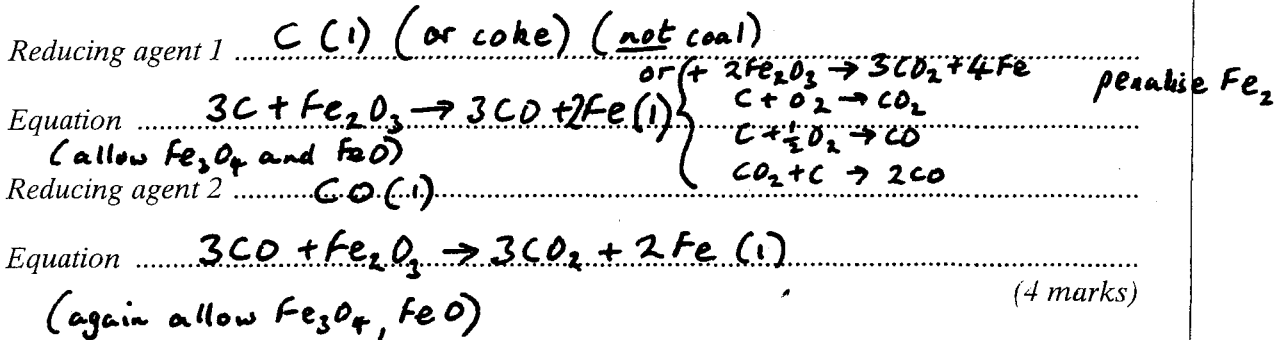 Reducing agent 1 C (1) (or coke) (not coal)
or (+ 2Fe₂O₃ → 3CO₂ + 4Fe
penalise Fe₂
Equation 3C + Fe₂O₃ → 3CO + 2Fe (1)
C + O₂ → CO₂
C + ½O₂ → CO
(allow Fe₃O₄ and FeO)
CO₂ + C → 2CO
Reducing agent 2 CO (1)
Equation 3CO + Fe₂O₃ → 3CO₂ + 2Fe (1)
(4 marks)
(again allow Fe₃O₄, FeO)